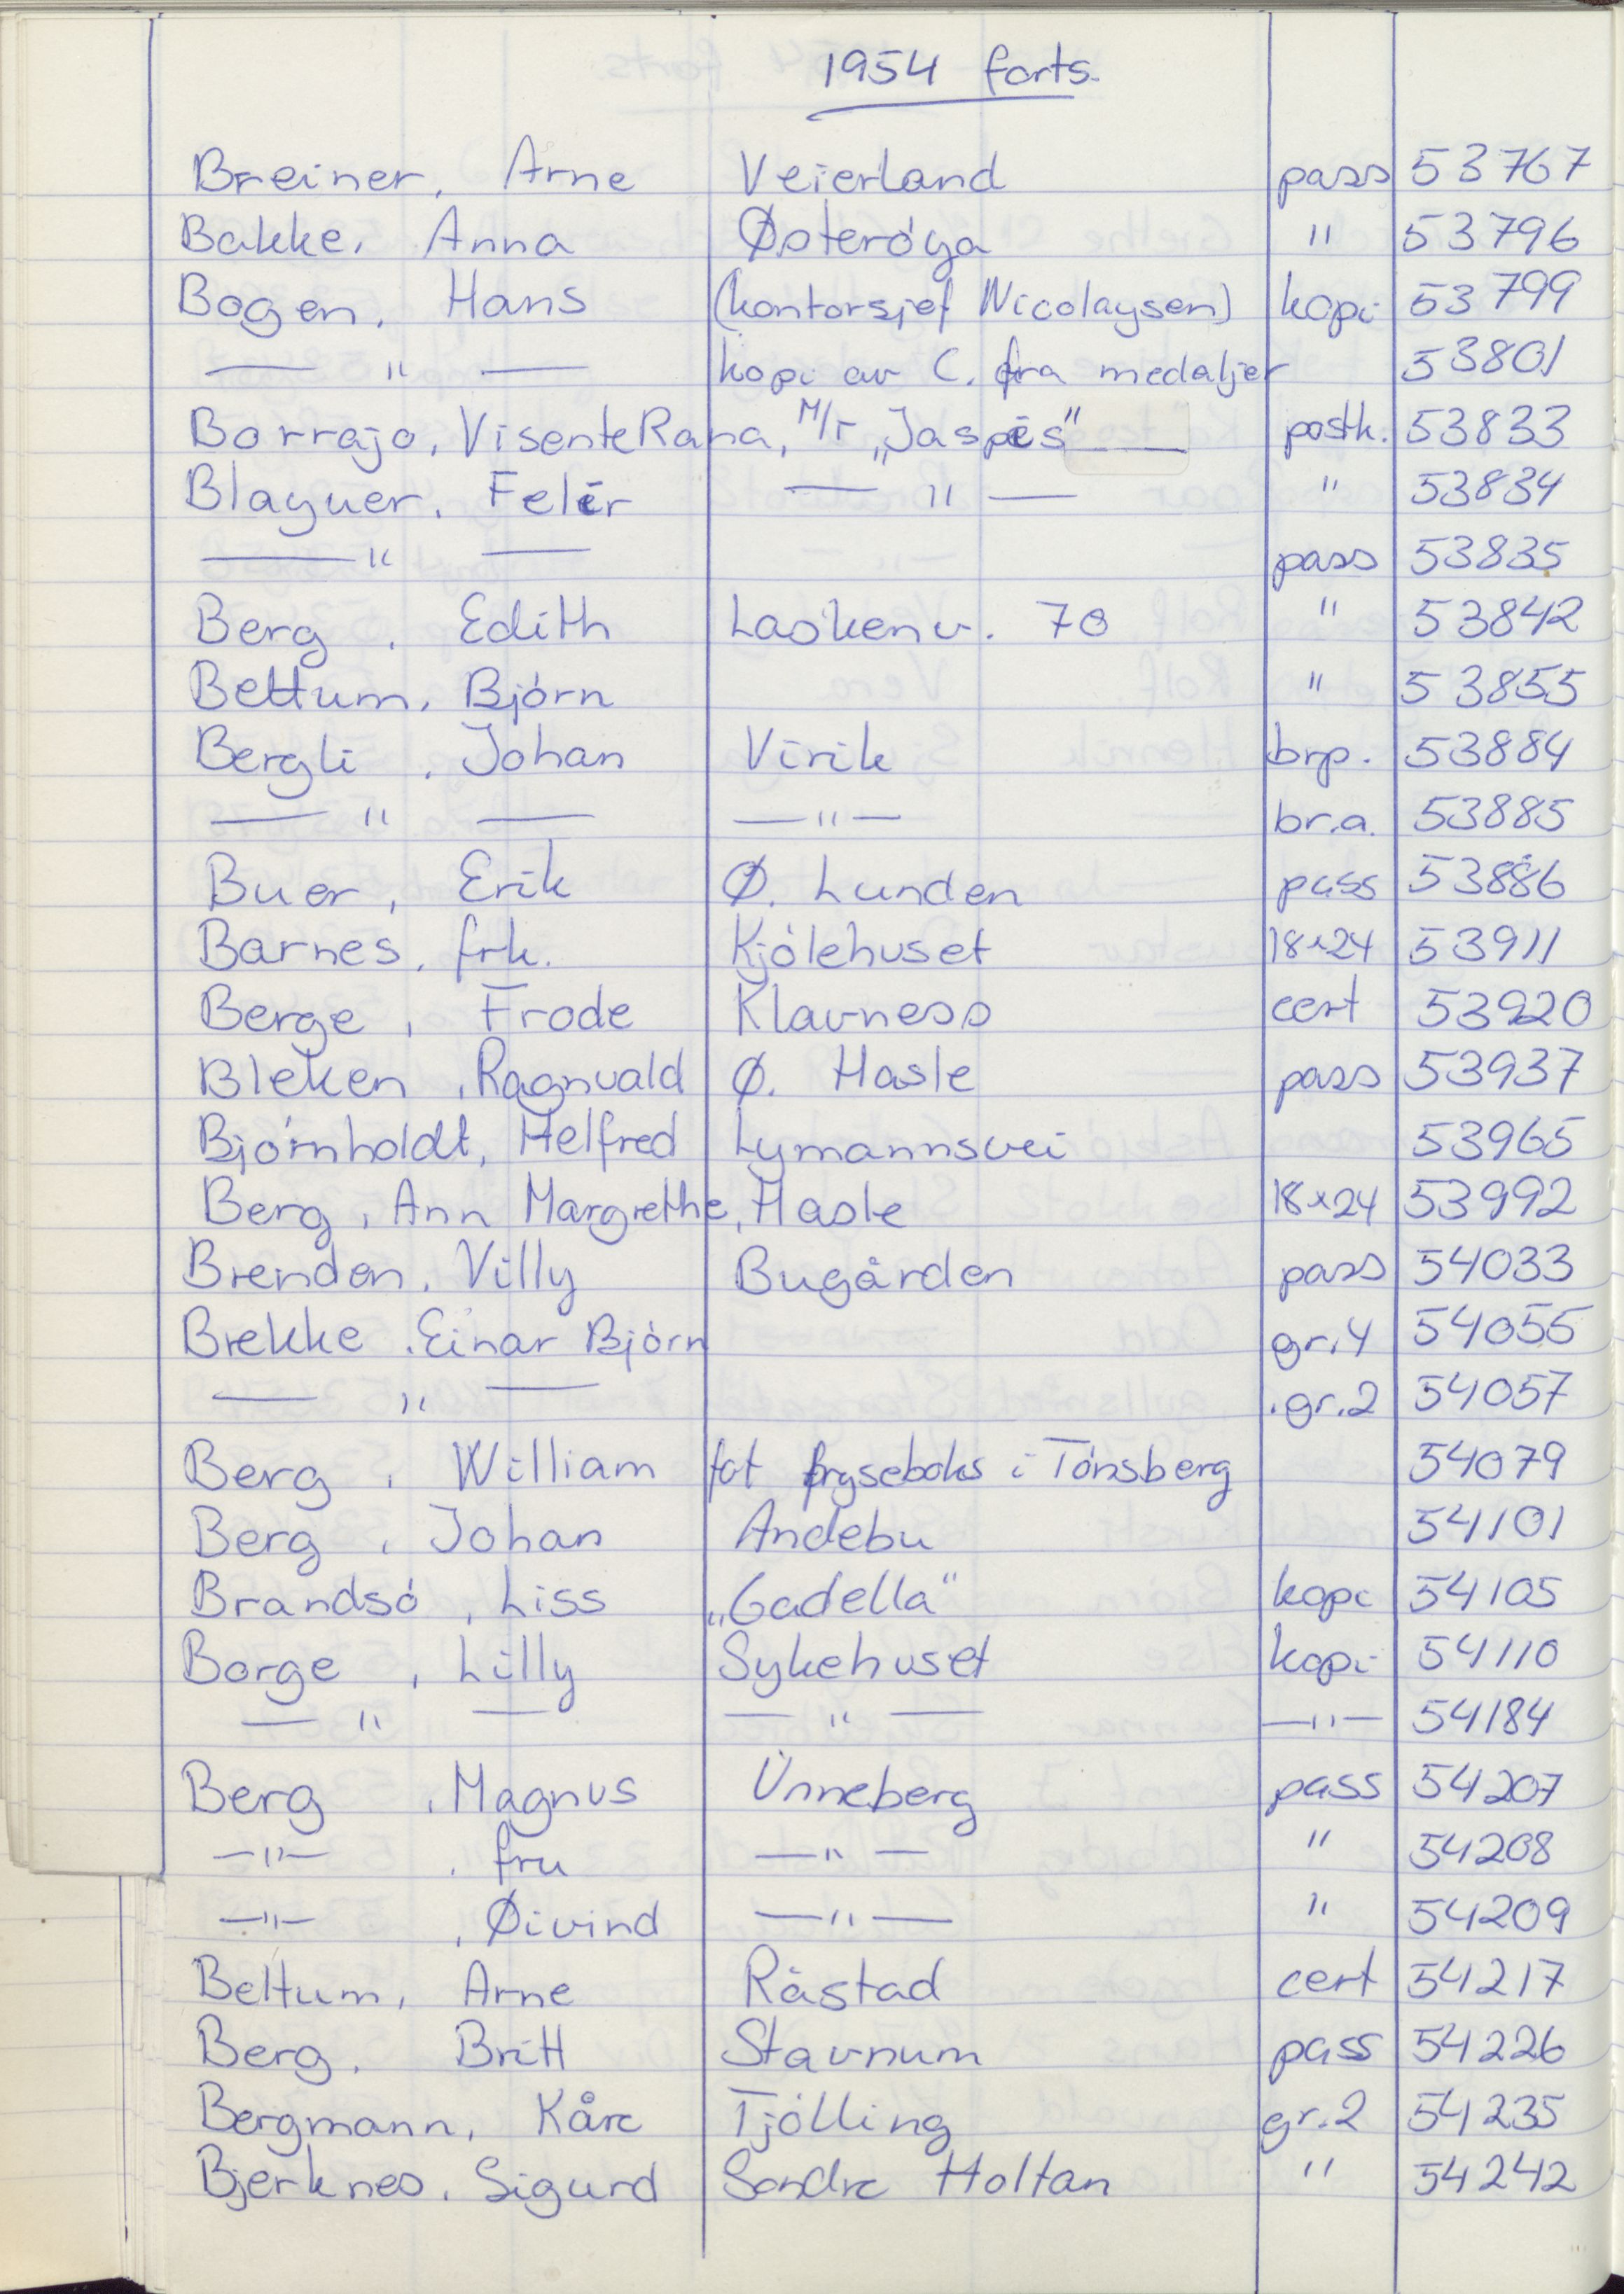 1954 forts.
Breiner, Arne Veierland pass 53767
Bakke, Anna Østerøya " 53796
Bogen, Hans (kontorsjef Nicolaysen) kopi 53799
— " — kopi av C. fra medaljer 53801
Borrajo, Visente Rana, M/T „Jaspis" postk. 53833
Blayuer, Felér — " — " 53834
— " — pass 53835
Berg, Edith Laskenv. 70 " 53842
Bettum, Bjørn " 53855
Bergli, Johan Virik brp. 53884
— " — — " — br.a. 53885
Buer, Erik Ø. Lunden pass 53886
Barnes, frk. Kjølehuset 18x24 53911
Berge, Frode Klavness cert 53920
Bleken, Ragnvald Ø. Hasle pass 53937
Bjørnholdt, Helfred Lymannsvei 53965
Berg, Ann Margrethe, Hasle 18x24 53992
Brenden, Villy Bugården pass 54033
Brekke, Einar Bjørn gr.4 54055
— " — gr.2 54057
Berg, William fot fryseboks i Tønsberg 54079
Berg, Johan Andebu 54101
Brandsø, Liss „Gadella" kopi 54105
Borge, Lilly Sykehuset kopi 54110
— " — — " — — " — 54184
Berg, Magnus Unneberg pass 54207
— " — , fru — " — " 54208
— " — , Øivind — " — " 54209
Bettum, Arne Råstad cert 54217
Berg, Britt Stavnum pass 54226
Bergmann, Kåre Tjølling gr.2 54235
Bjerknes, Sigurd Søndre Holtan " 54242